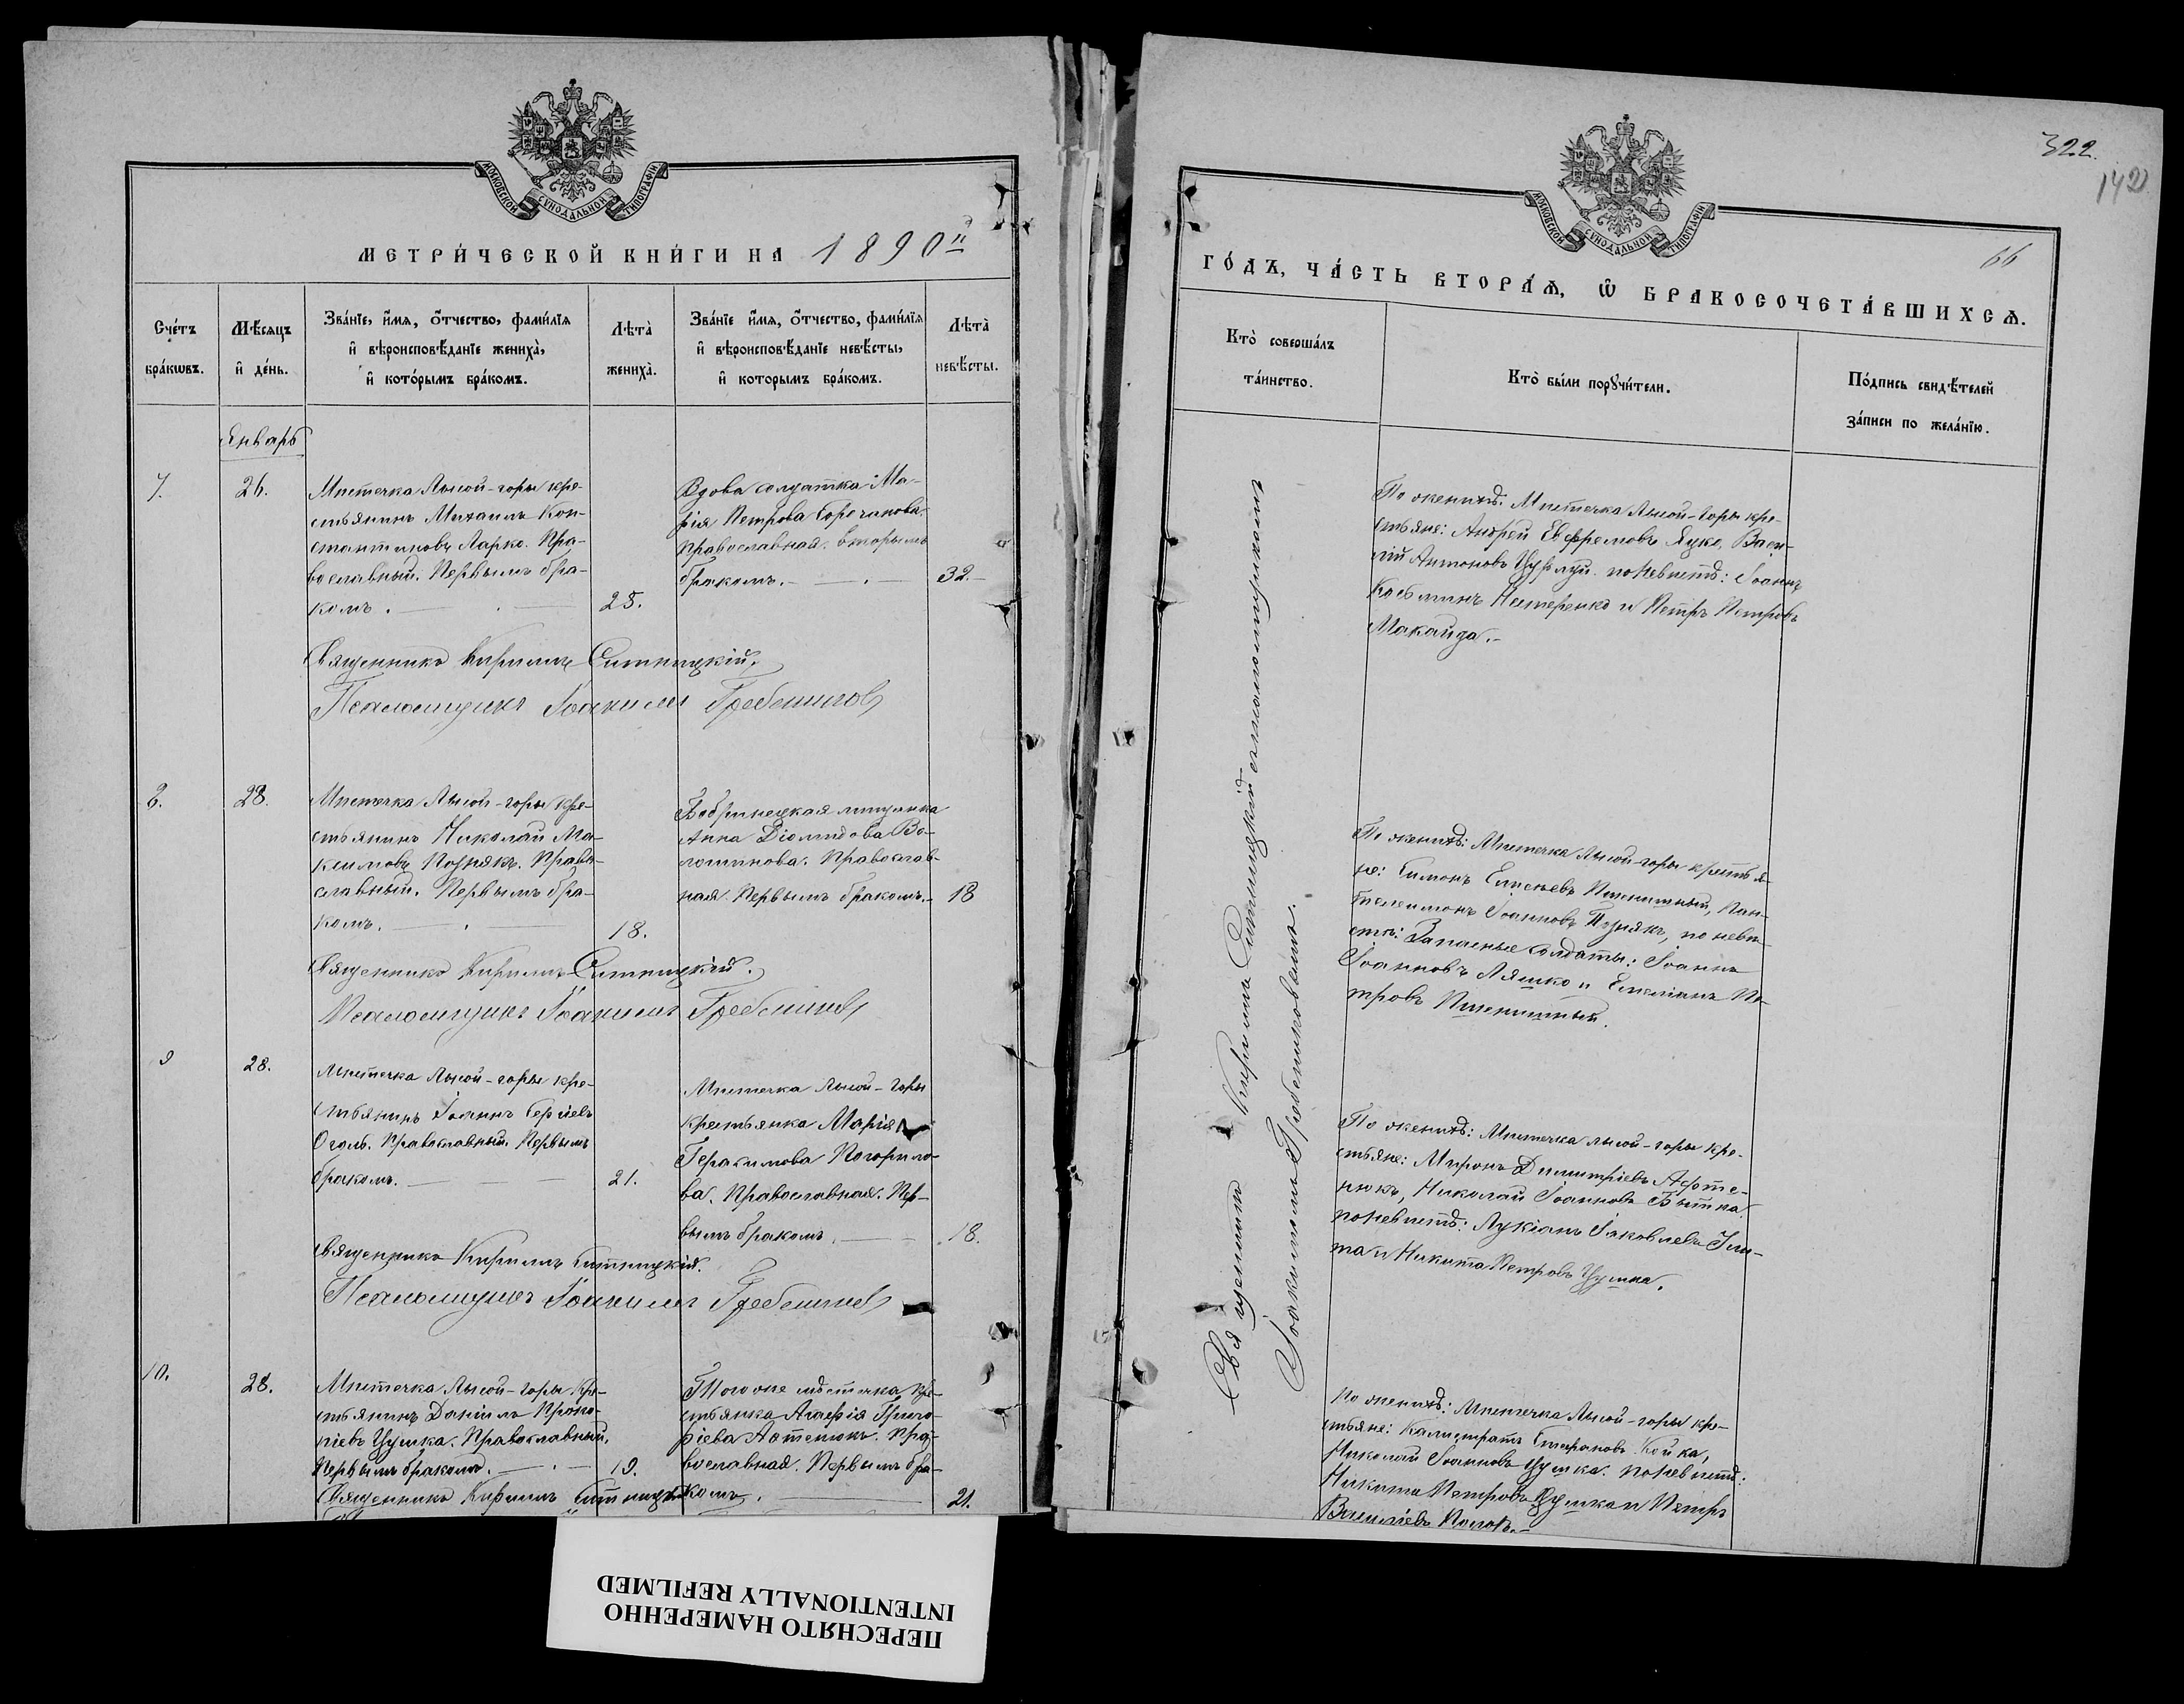 МОСКОВСКОЙ СѴНОДАЛЬНОЙ ТИПОГРАФІИ
МЕТРИ́ЧЕСКОЙ КНИ́ГИ НА 1890й
Сче́тъ бра́кѡвъ.
Мѣ́сяцъ и де́нь.
Зва́нїе, и́мя, о́тчество, фами́лїя и вѣроисповѣ́данїе жениха̀, и кото́рымъ бра́комъ.
Лѣта̀ жениха̀.
Зва́нїе и́мя, о́тчество, фами́лїя и вѣроисповѣ́данїе невѣ́сты, и которымъ бра́комъ.
Лѣта̀ невѣ́сты.
Январь
7.
26.
Мѣстечка Лысой-горы кре-
стьянинъ Михаилъ Кон-
стантиновъ Ларко. Пра-
вославный. Первымъ бра-
комъ.
25.
Вдова солдатка Ма-
рія Петрова
православная. вторымъ
бракомъ.
32.
Священникъ Кириллъ Ситницкій.
Псаломщикъ Іоакимъ Гребешковъ
8.
28.
Мѣстечка Лысой-горы кре-
стьянинъ Николай Ма-
ксимовъ Познякъ. Право-
славный. Первымъ бра-
комъ.
18.
Бобринецкая мѣщанка
Анна Діомидова Во-
лошинова. Православ-
ная. Первымъ бракомъ.
18
Священникъ Кириллъ Ситницкій.
Псаломщикъ Іоакимъ Гребешковъ
9
28.
Мѣстечка Лысой-горы кре-
стьянинъ Іоаннъ Сергіевъ
Оголь. Православный. Первымъ
бракомъ.
21.
Мѣстечка Лысой-горы
крестьянка Марія
Герасимова Погорило-
ва. Православная. Пер-
вымъ бракомъ.
18.
Священникъ Кириллъ Ситницкій.
Псаломщикъ Іоакимъ Гребешковъ
10.
28.
Мѣстечка Лысой-горы кре-
стьянинъ Даніилъ Проко-
піевъ Цушка. Православный.
Первымъ бракомъ.
19.
Того же мѣстечка кре-
стьянка Агафія Григо-
ріева Артенюкъ. Пра-
вославная. Первымъ бра-
комъ.
21.
Священникъ Кириллъ Ситницкій
322.
142
66
МОСКОВСКОЙ СѴНОДАЛЬНОЙ ТИПОГРАФІИ
ГО́ДЪ, ЧА́СТЬ ВТОРА́Я, Ѡ БРАКОСОЧЕТА́ВШИХСЯ.
Кто̀ соверша́лъ та́инство.
Кто̀ бы́ли порꙋчи́тели.
По́дпись свидѣ́телей за́писи по жела́нїю.
Священникъ Кириллъ Ситницкій съ псаломщикомъ
Іоакимомъ Гребешковымъ.
По женихѣ: Мѣстечка Лысой-Горы кре-
стьяне: Андрей Евфремовъ Яцко, Васи-
лій Антоновъ по невѣстѣ: Іоаннъ
Косьминъ Нестеренко и Петръ Петровъ
Макайда.
По женихѣ: Мѣстечка Лысой-горы крестья-
не: Симонъ Евсеньевъ Пшеничный, Пан-
телеимонъ Іоанновъ Познякъ, по невѣ-
стѣ: Запасные солдаты: Іоаннъ
Іоанновъ Ляшко и Емеліанъ Пе-
тровъ Пшеничный.
По женихѣ: Мѣстечка Лысой-горы кре-
стьяне: Миронъ Димитріевъ Арте-
нюкъ, Николай Іоанновъ
по невѣстѣ: Лукіанъ Іаковлевъ
и Никита Петровъ Цушка.
По женихѣ: Мѣстечка Лысой-горы кре-
стьяне: Калистратъ Стефановъ Койка,
Николай Іоанновъ Цушка. по невѣстѣ:
Никита Петровъ Цушка и Петръ
Василіевъ
ПЕРЕСНЯТО НАМЕРЕННО
INTENTIONALLY REFILMED